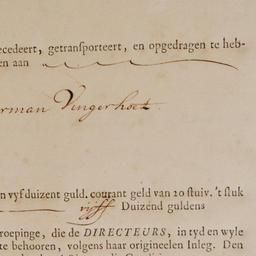 ecedeert, getransporteert, en opgedragen te heb-
en aan
rman Vingerhoet
n vyf duizent guld. courant geld van 20 stuiv. 't stuk
vyff Duizend guldens
roepinge, die de DIRECTEURS, in tyd en wyle
te behooren, volgens haar origineelen Inleg. Den